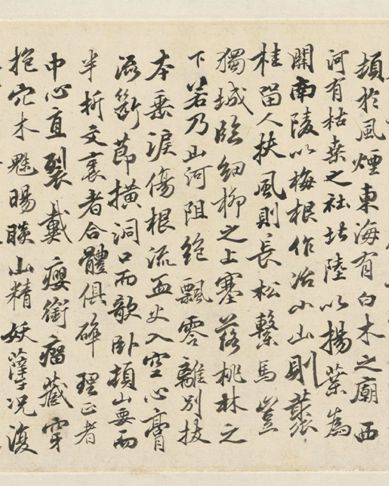 頹於風煙東海有白木之廟西
河有枯桑之社北陸以揚葉為
關南陵以梅根作冶小山則叢
桂留人扶風則長松繫馬豈
獨城臨細柳之上塞落桃林之
下若乃山河阻絕飄零離別拔
本垂淚傷根流血火入空心膏
流斷節橫洞口而欹臥頓山要而
半折文衺者合體俱碎理正者
中心直裂戴癭銜瘤藏穿
抱穴木魅睗睒山精妖孽況復